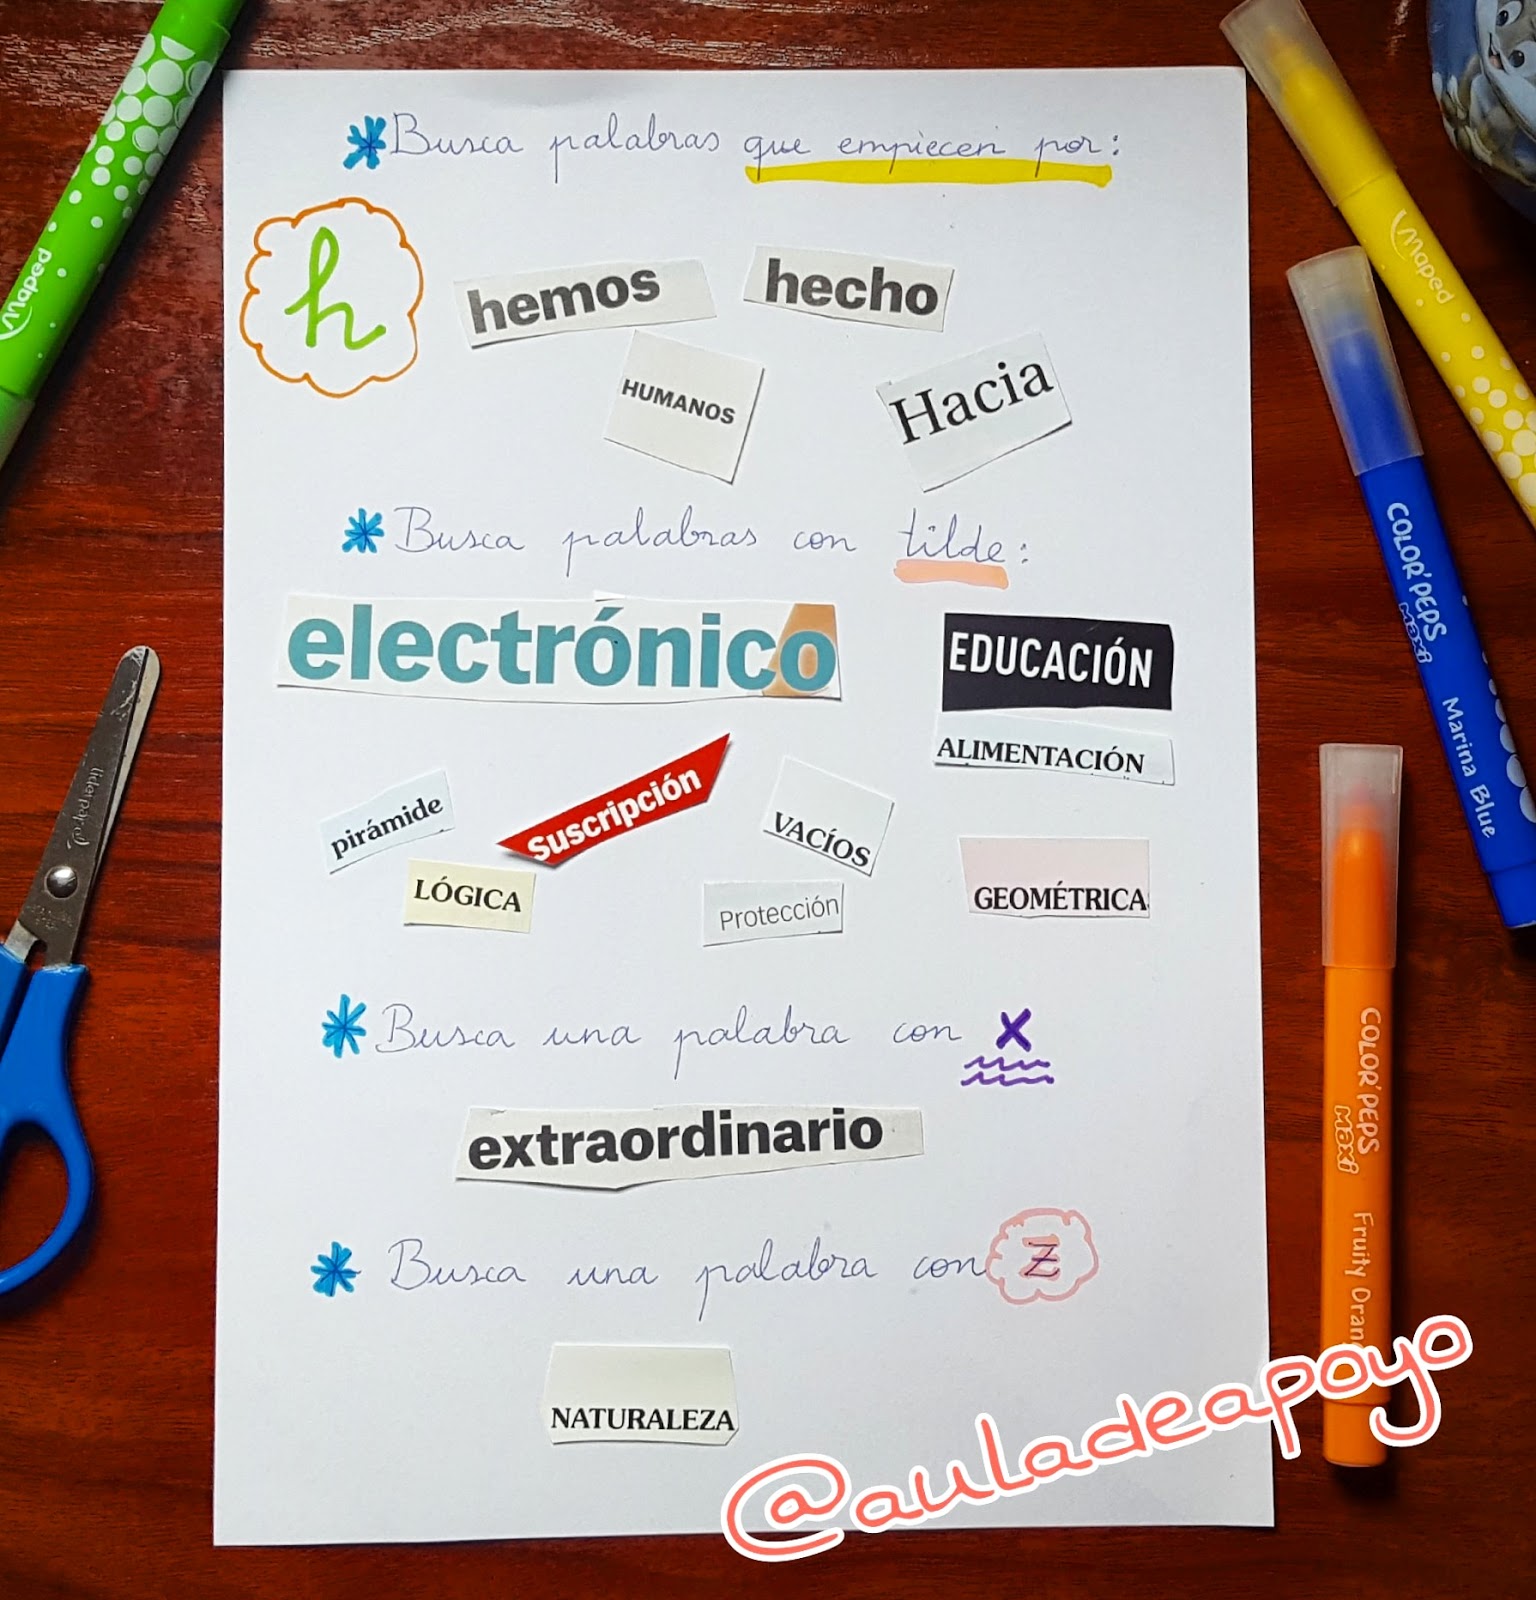 Busca palabras que empiecen por:
h
hemos
hecho
HUMANOS
Hacia
Busca palabras con tilde:
electrónico
EDUCACIÓN
ALIMENTACIÓN
pirámide
Suscripción
VACÍOS
LÓGICA
Protección
GEOMÉTRICA
Busca una palabra con X
extraordinario
Busca una palabra con Z
NATURALEZA
@auladeapoyo
Maped
Maped
COLOR'PEPS
Maxi
Marina Blue
COLOR'PEPS
Maxi
Fruity Oran
liderpapel